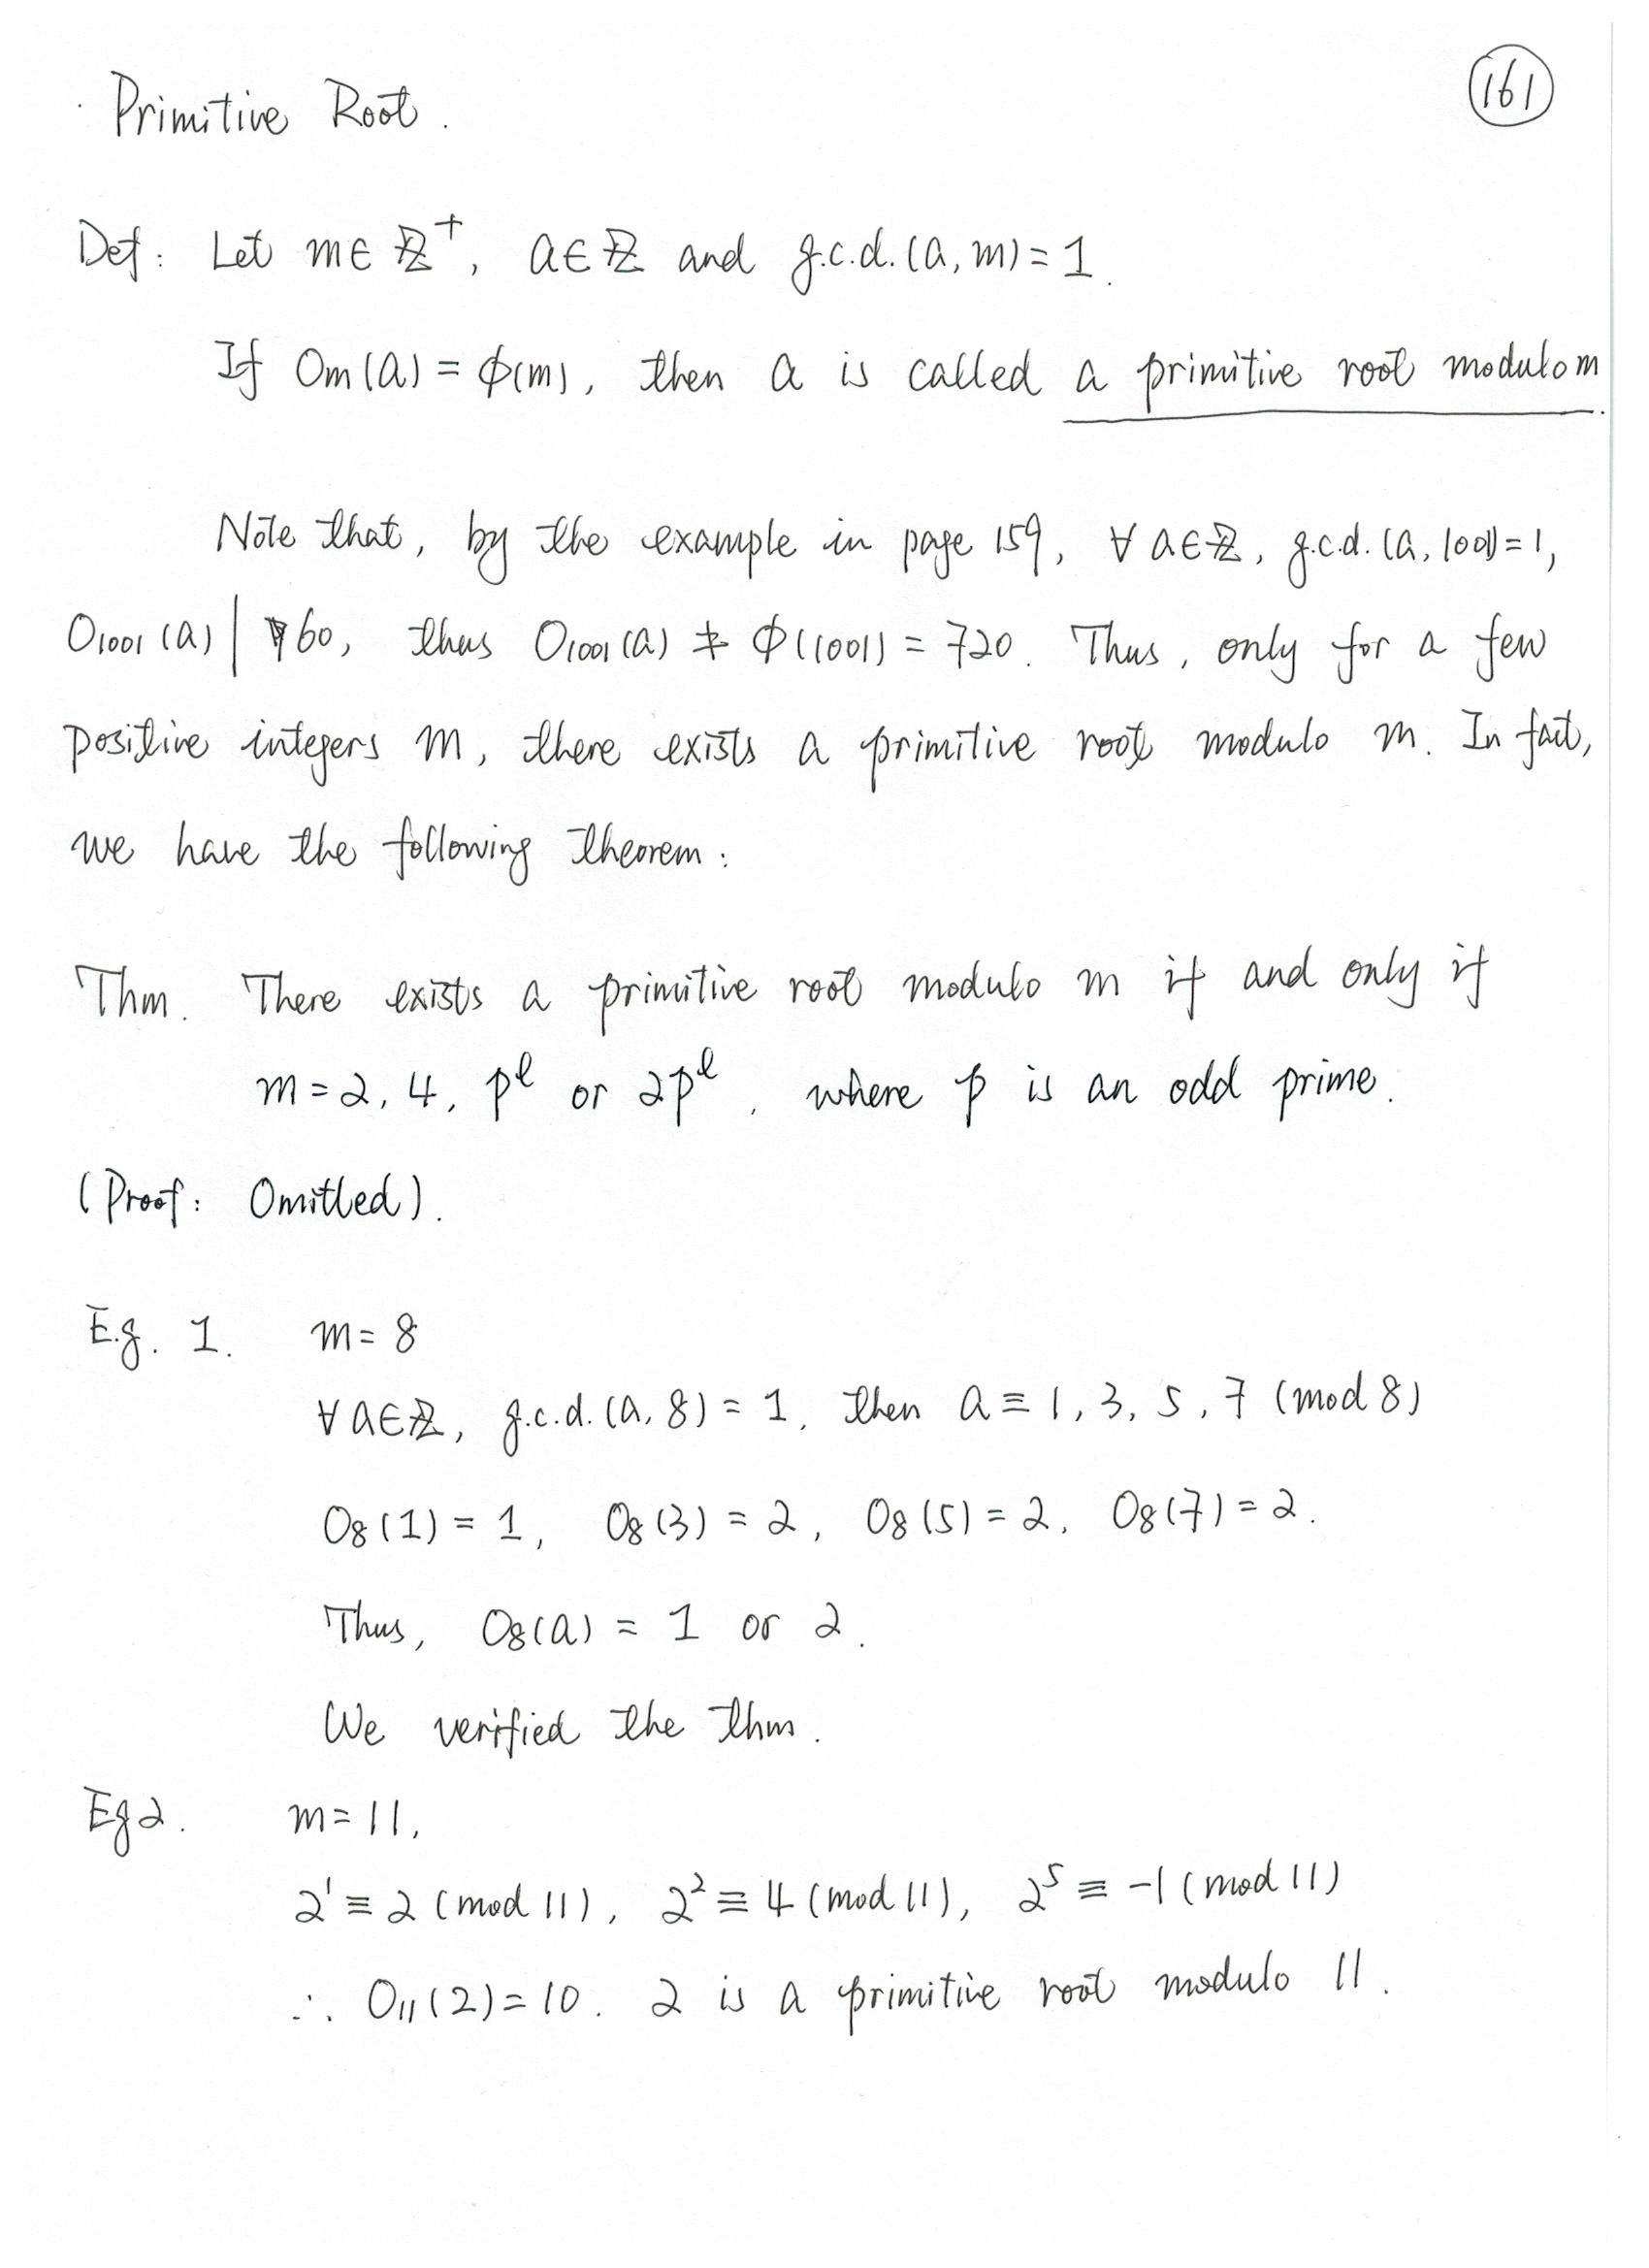 Primitive Root.
161
Def: Let m∈ℤ⁺, a∈ℤ and g.c.d.(a, m)=1.
If Oₘ(a) = ϕ(m), then a is called a primitive root modulo m.
Note that, by the example in page 159, ∀ a∈ℤ, g.c.d. (a, 1001)=1,
O₁₀₀₁(a) | 60, thus O₁₀₀₁(a) ≠ ϕ(1001) = 720. Thus, only for a few
positive integers m, there exists a primitive root modulo m. In fact,
we have the following theorem:
Thm. There exists a primitive root modulo m if and only if
m=2, 4, pˡ or 2pˡ, where p is an odd prime.
(Proof: Omitted).
E.g. 1. m=8
∀a∈ℤ, g.c.d.(a, 8)=1, then a≡1, 3, 5, 7 (mod 8)
O₈(1)=1, O₈(3)=2, O₈(5)=2, O₈(7)=2.
Thus, O₈(a) = 1 or 2.
We verified the thm.
Eg2. m=11,
2¹≡2 (mod 11), 2²≡4 (mod 11), 2⁵≡-1 (mod 11)
∴ O₁₁(2)=10. 2 is a primitive root modulo 11.